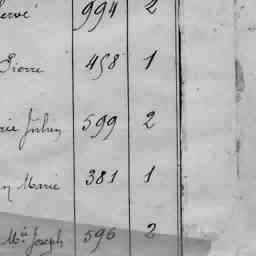 994 2
Pierre 458 1
Julien 599 2
Marie 381 1
Mie Joseph 596 2